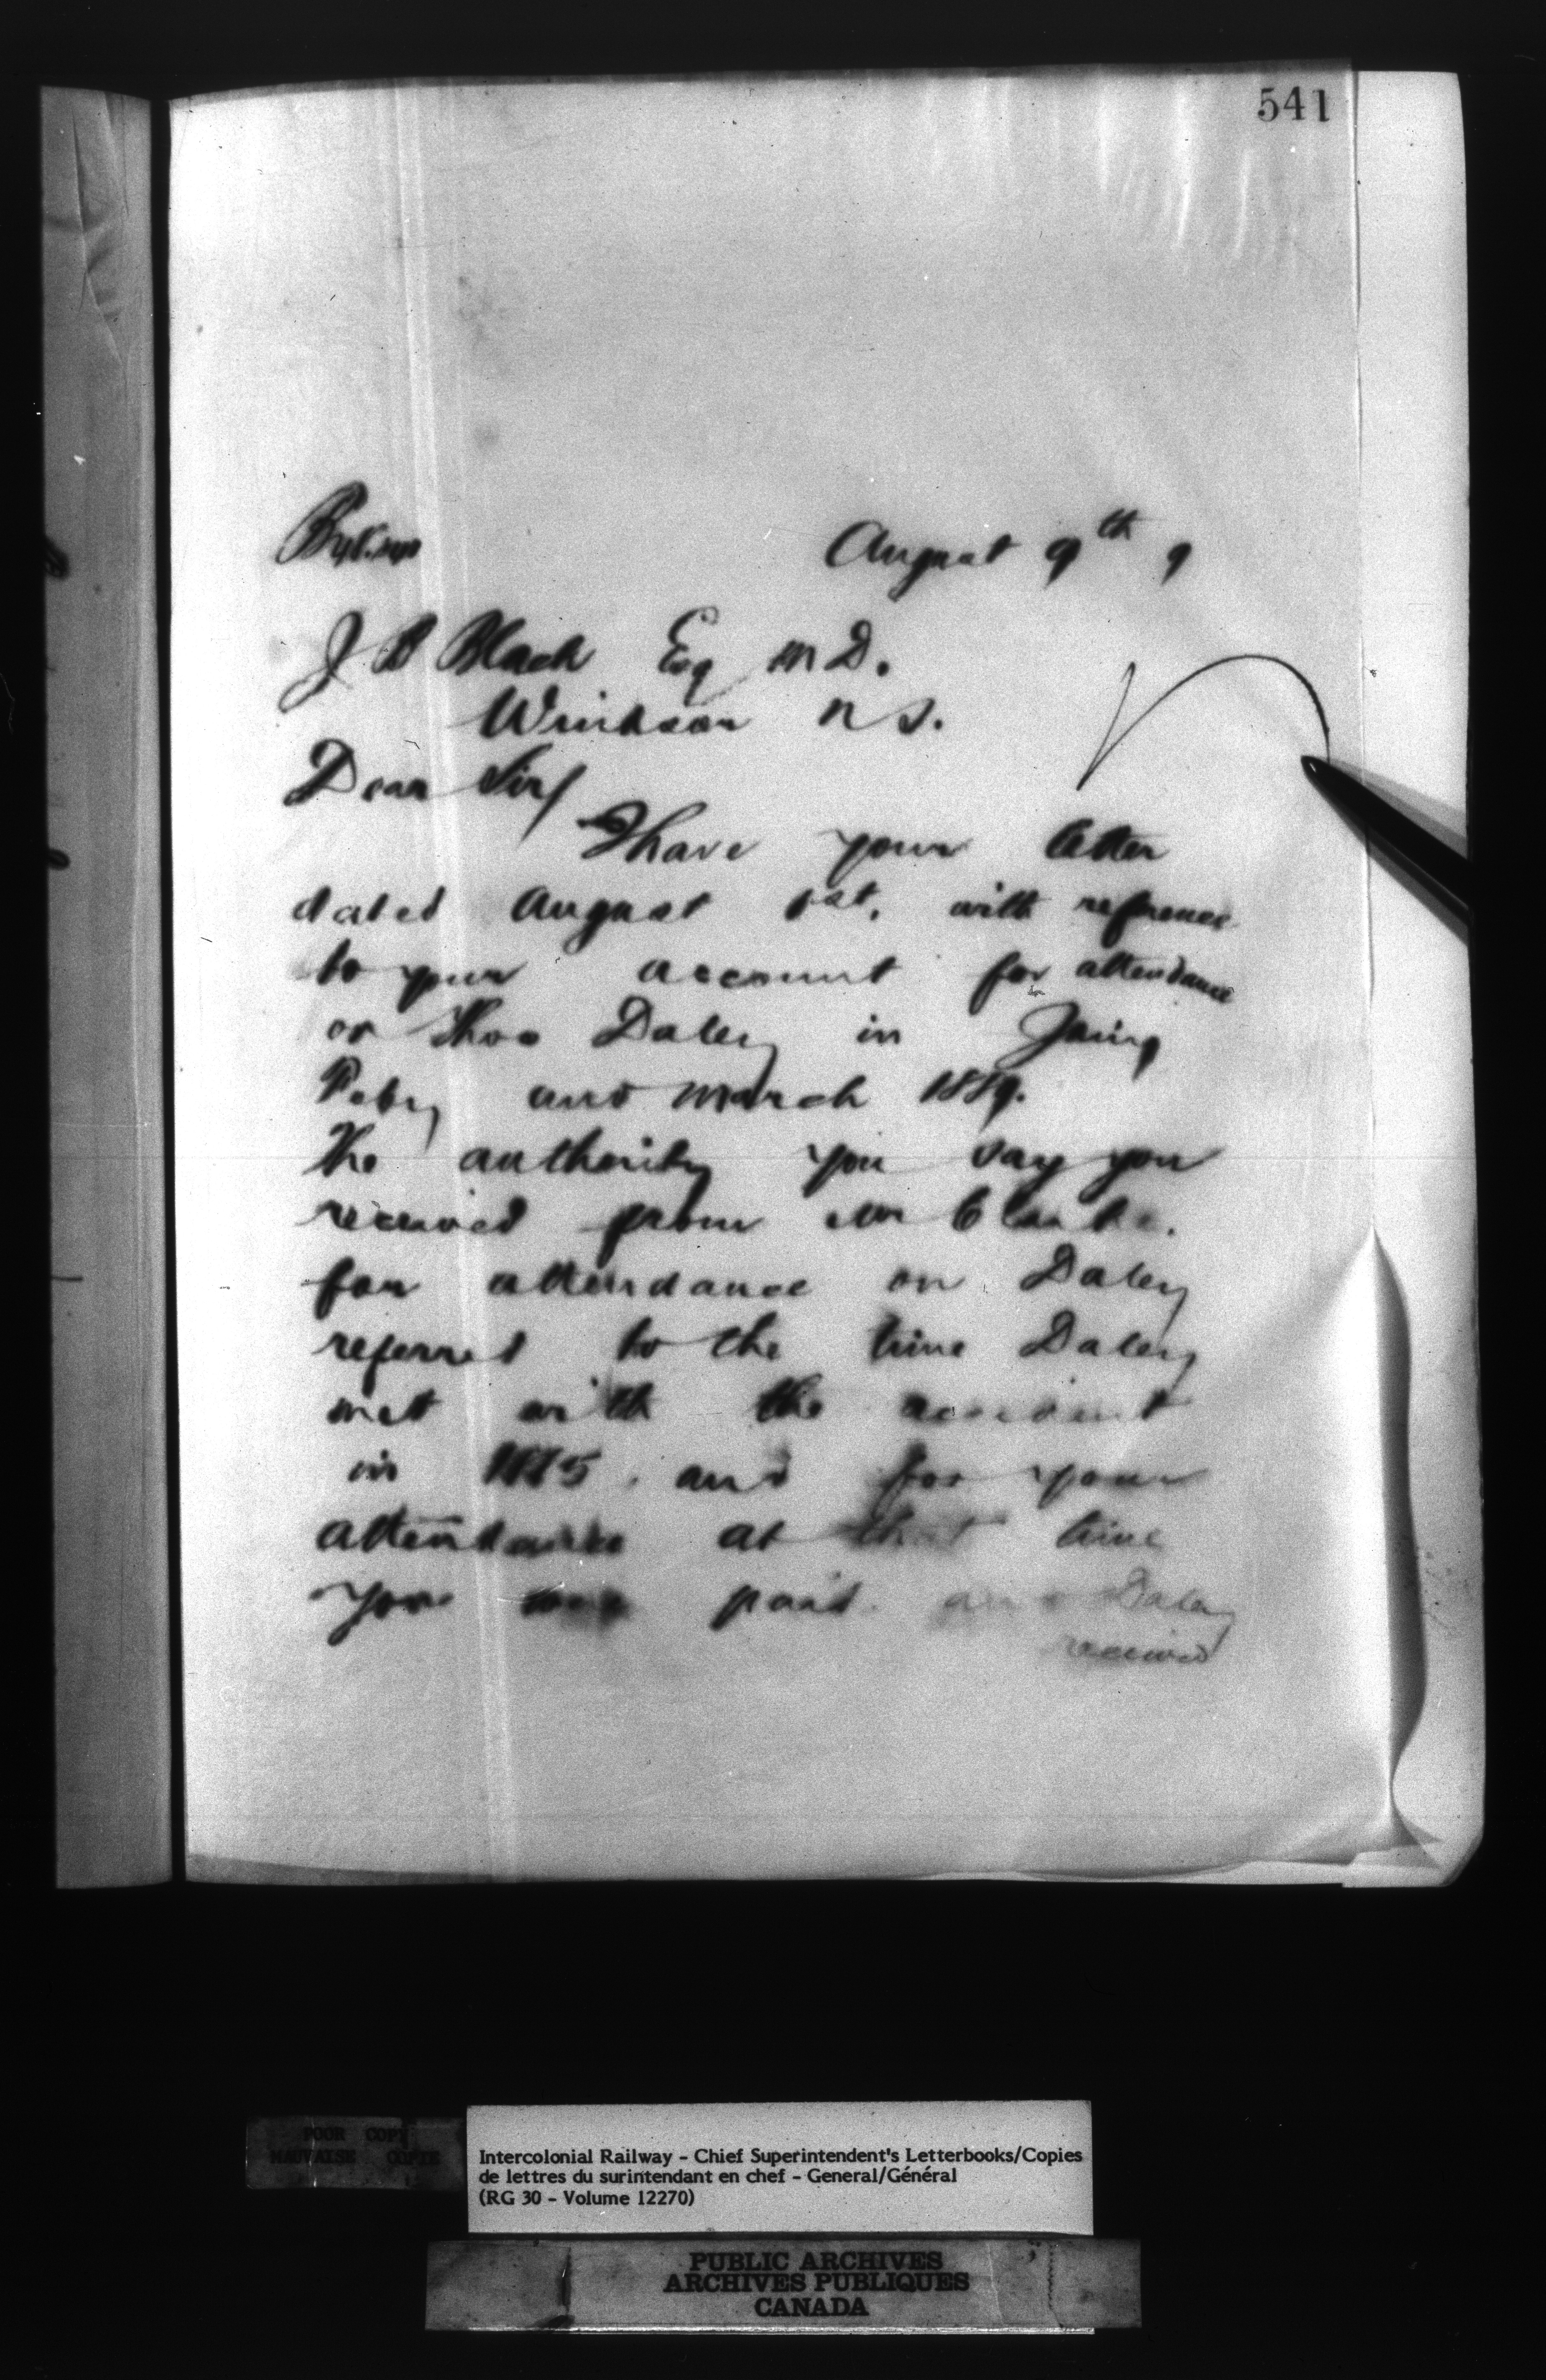 541
August 9th 9
J B Black Esq M D.
Windsor N S.
Dear Sir/
I have your letter
dated August 1st. with reference
to your account for attendance
on Thos Daley in Jany
Feby and March 1889.
The authority you say you
received from Mr Clarke.
for attendance on Daley
referred to the time Daley
met with the accident
in 1885. and for your
attendance at that time
you were paid. and Daley
received
POOR COPY
MAUVAISE COPIE
Intercolonial Railway - Chief Superintendent's Letterbooks/Copies
de lettres du surintendant en chef - General/Général
(RG 30 - Volume 12270)
PUBLIC ARCHIVES
ARCHIVES PUBLIQUES
CANADA